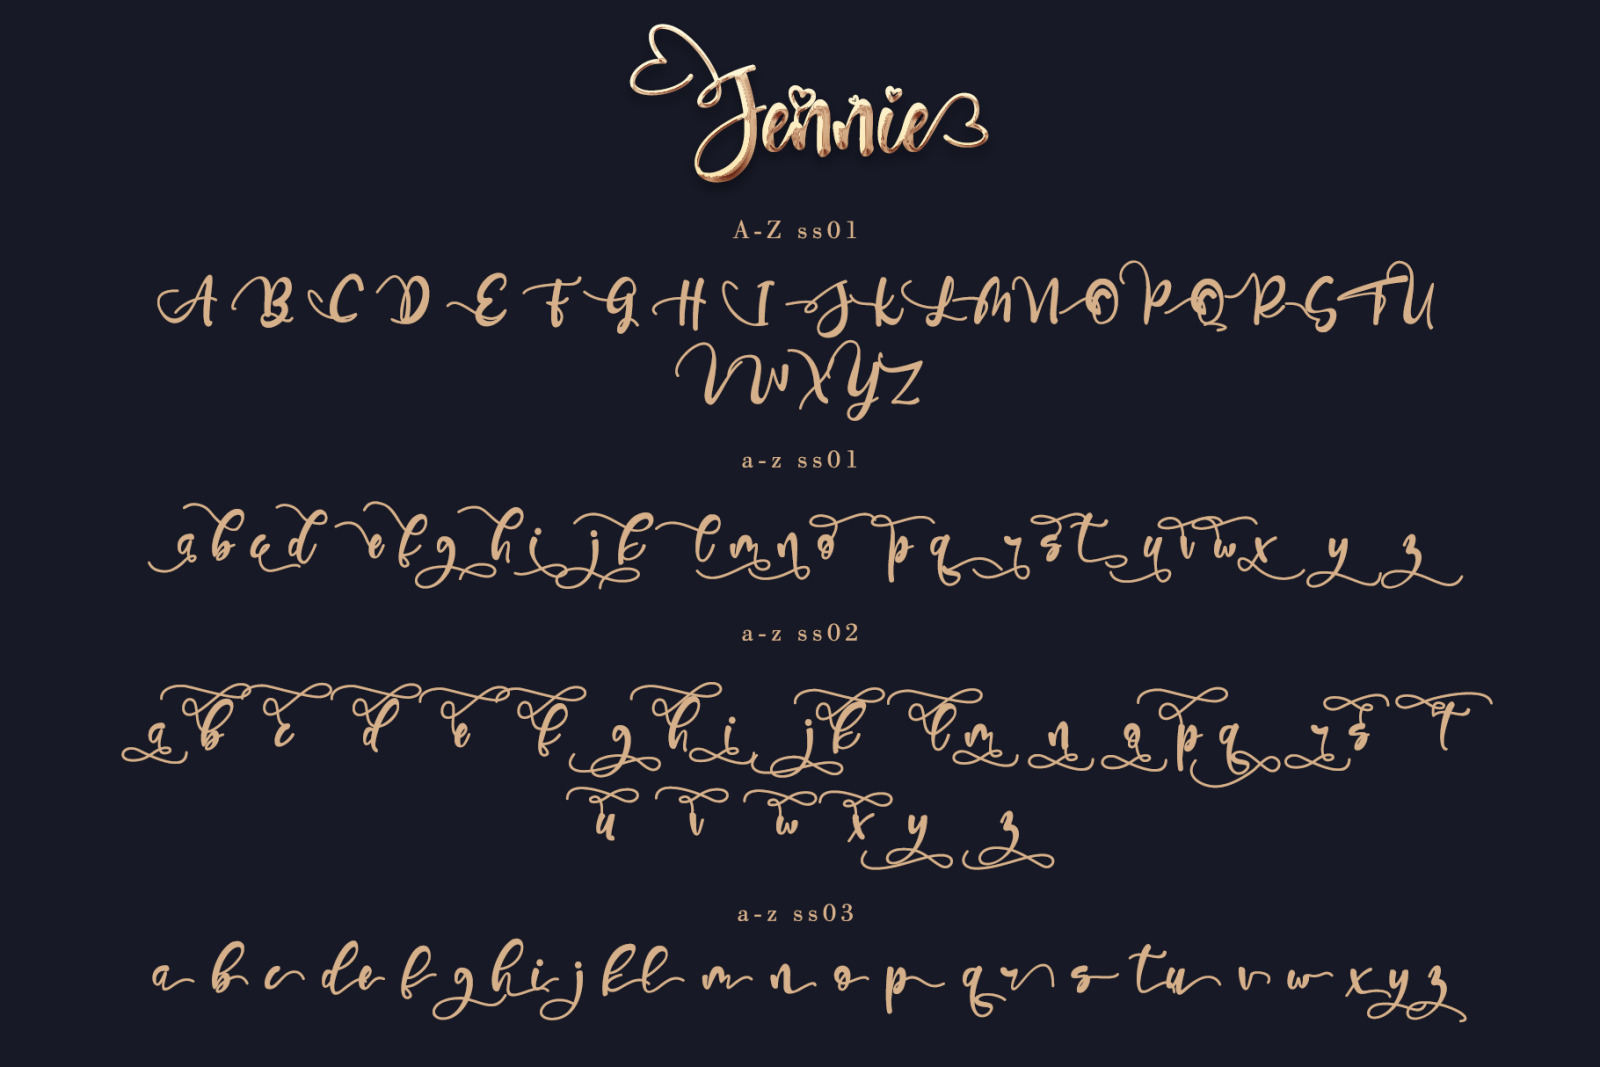 Jennie
A-Z ss01
A B C D E F G H I J K L M N O P Q R S T U
V W X Y Z
a-z ss01
a b c d e f g h i j k l m n o p q r s t u v w x y z
a-z ss02
a b c d e f g h i j k l m n o p q r s t
u v w x y z
a-z ss03
a b c d e f g h i j k l m n o p q r s t u v w x y z